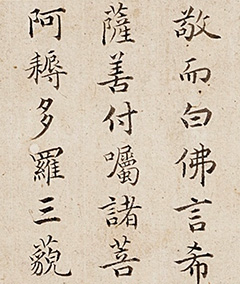 敬而白佛言希
薩善付囑諸菩
阿耨多羅三藐